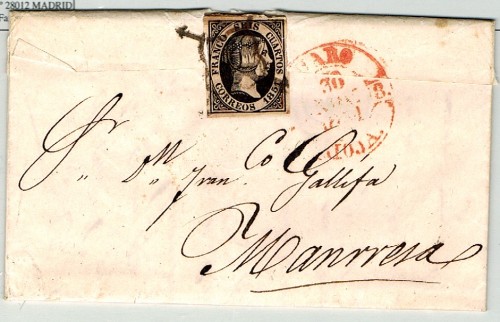 º 28012 MADRID
FRANCO SEIS CUARTOS
CORREOS 1851
HARO
30
1851
RIOJA
Sr. Dn.
Fran. Co Gallifa
Manrresa